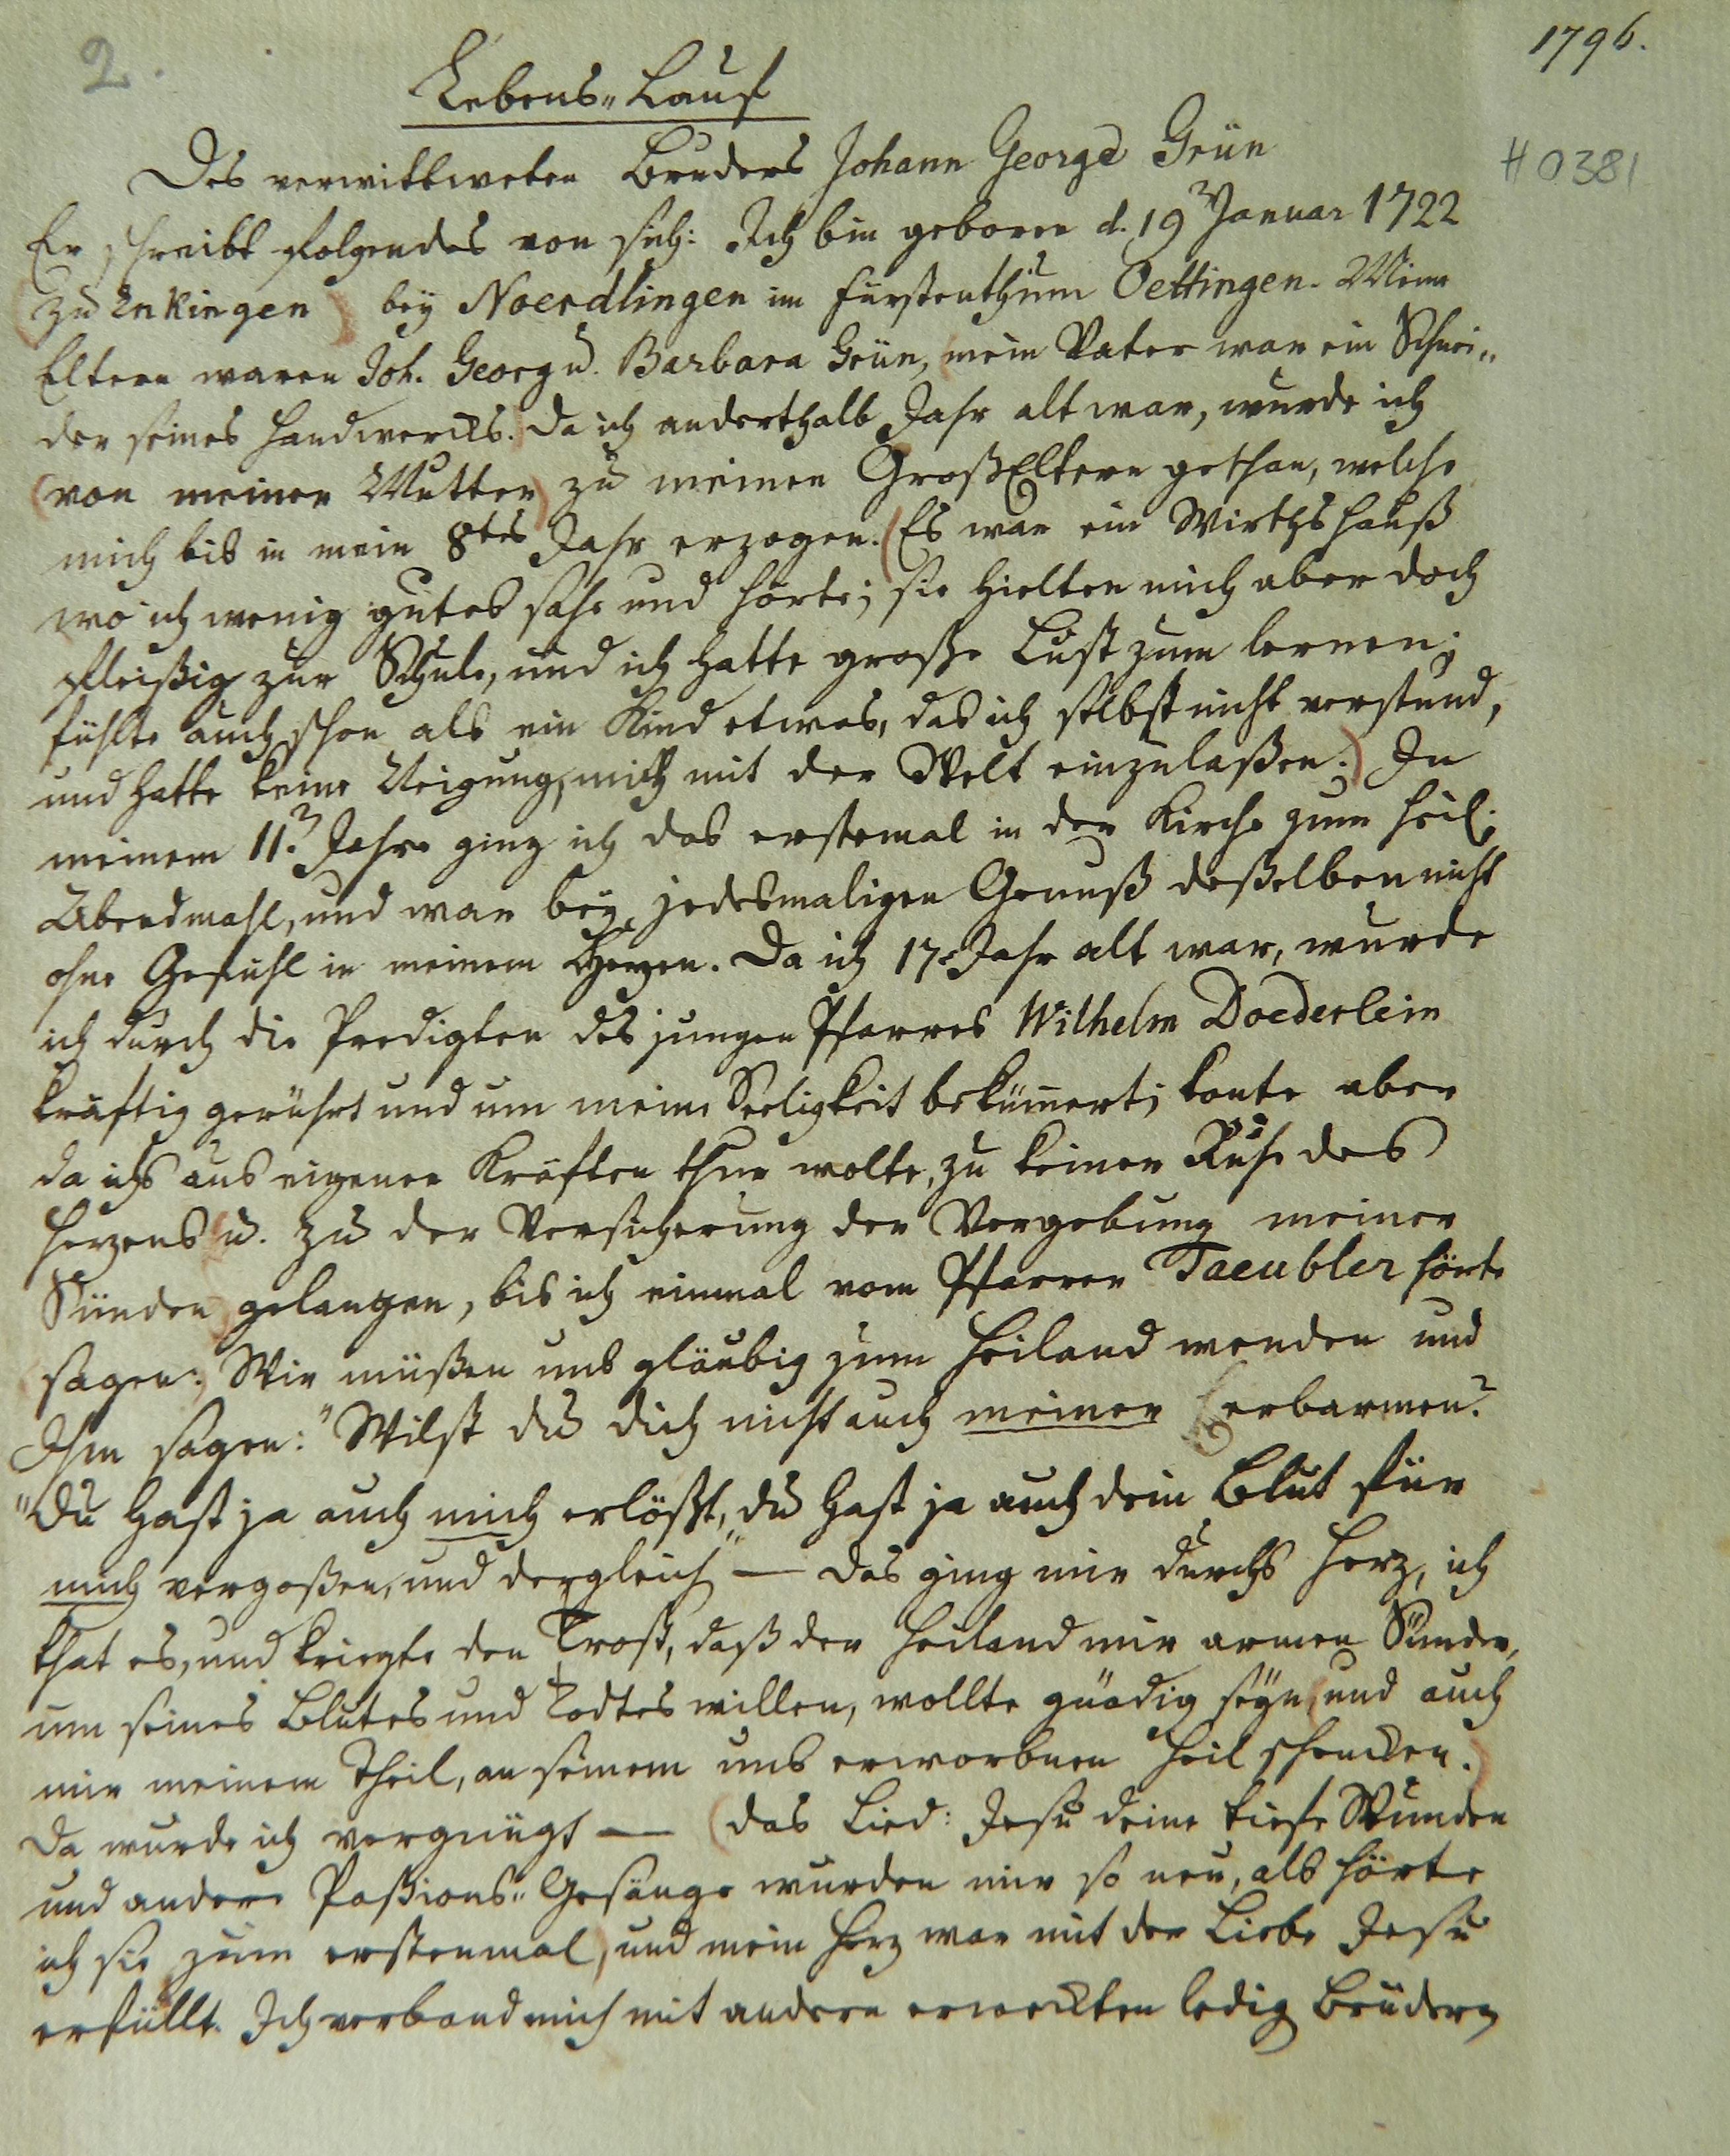 2.
1796.
Lebens-Lauf
H 0381
Des verwittweten Bruders Johann George Grün
Er schreibt folgendes von sich: Ich bin geboren d. 19 Januar 1722
(zu Enkingen) bey Noerdlingen im Fürstenthum Oettingen. Meine
Eltern waren Joh. Georg u. Barbara Grün, mein Vater war ein Schnei-
der seines Handwercks. Da ich anderthalb Jahr alt war, wurde ich
(von meiner Mutter) zu meinen GroßEltern gethan, welche
mich bis in mein 8tes Jahr erzogen. (Es war ein Wirthshauß
wo ich wenig gutes sahe und hörte; sie hielten mich aber doch
fleißig zur Schule, und ich hatte große Lust zum lernen;
fühlte auch schon als ein Kind etwas, das ich selbst nicht verstund,
und hatte keine Neigung, mich mit der Welt einzulaßen.) In
meinem 11. Jahre ging ich das erstemal in der Kirche zum heil.
Abendmahl, und war bey jedesmaligen Genuß deßelben nicht
ohne Gefühl in meinem Herzen. Da ich 17. Jahr alt war, wurde
ich durch die Predigten des jungen Pfarres Wilhelm Doederlein
kräftig gerührt und um meine Seeligkeit bekümert; konte aber
da ichs aus eigenen Kräften thun wolte, zu keiner Ruhe des
Herzens (u. zu der Versicherung der Vergebung meiner
Sünden) gelangen, bis ich einmal vom Pfarrer Taeubler hörte
sagen: Wir müßen uns gläubig zum Heiland wenden und
Ihm sagen: "Wilst du dich nicht auch meiner erbarmen?
"Du hast ja auch mich erlößt, du hast ja auch dein Blut für
mich vergoßen, und dergleich" — das ging mir durchs Herz, ich
that es, und kriegte den Trost, daß der Heiland mir armen Sünder,
um seines Blutes und Todtes willen, wollte gnädig seyn (und auch
mir meinen Theil, an seinem uns erworbnen Heil schencken.)
Da wurde ich vergnügt — (das Lied: Jesu deine tiefe Wunden
und andere Paßions-Gesänge wurden mir so neu, als hörte
ich sie zum erstenmal), und mein Herz war mit der Liebe Jesu
erfüllt. Ich verband mich mit andern erweckten ledig Brüdern